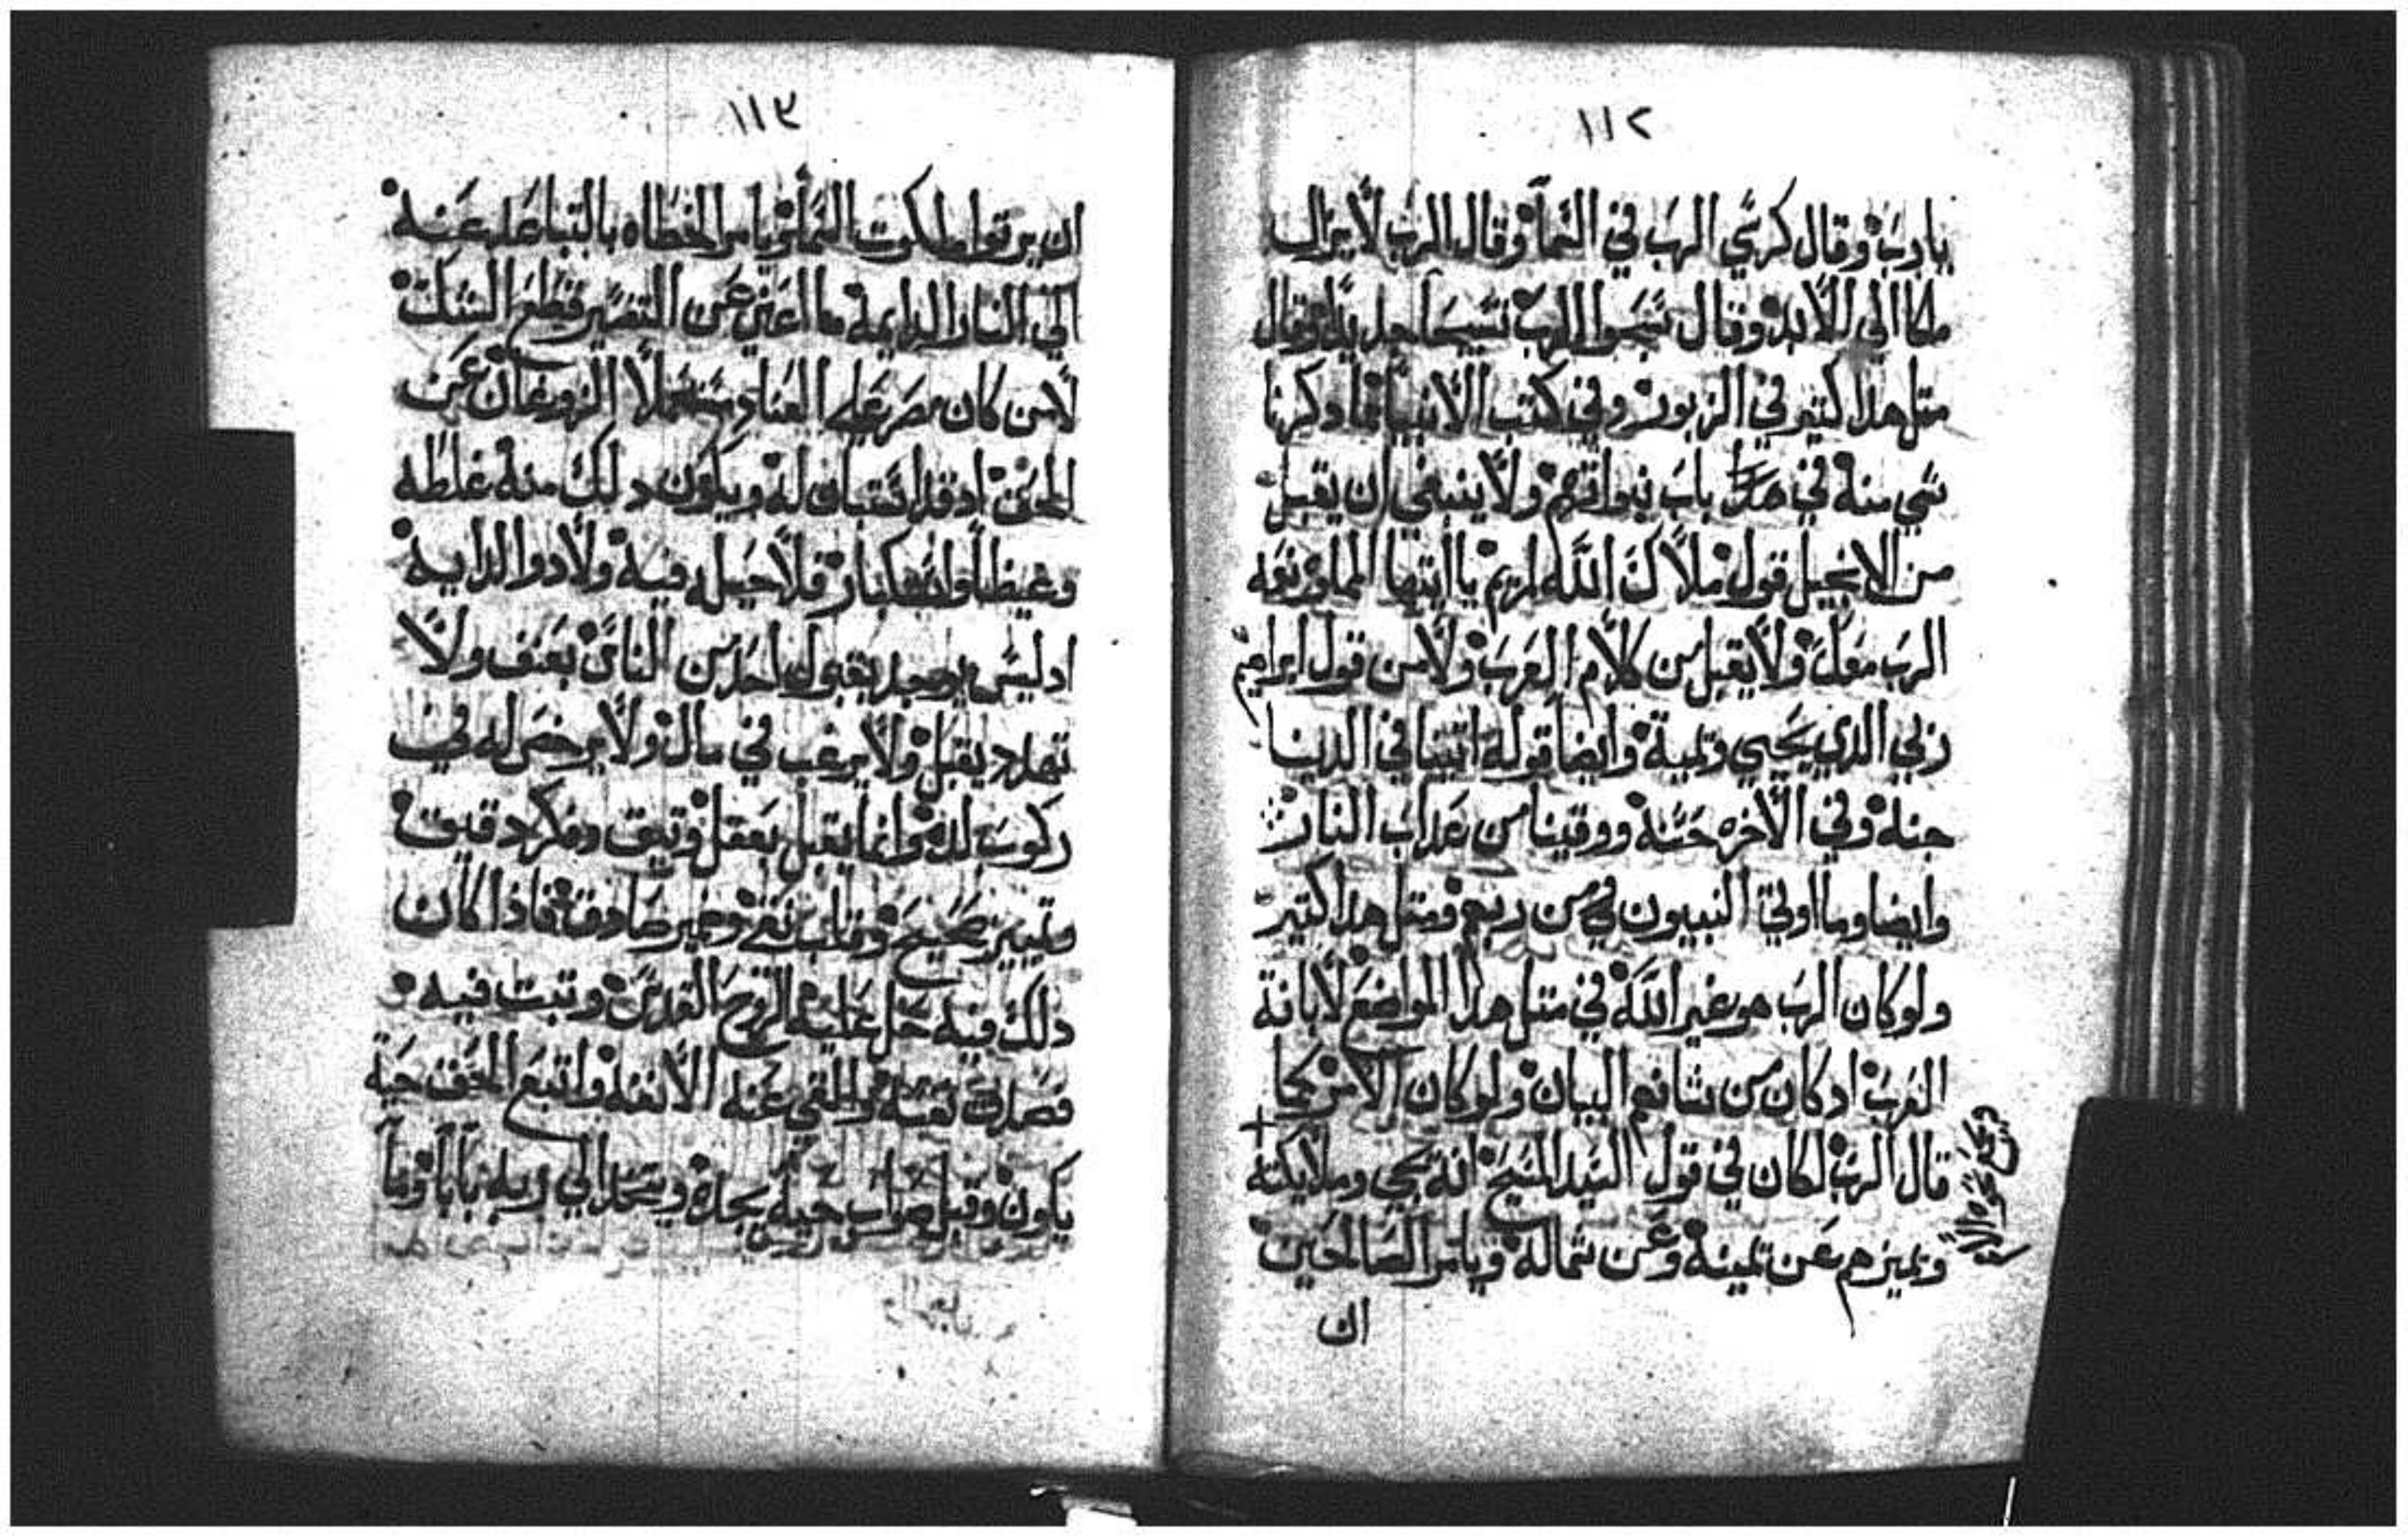 ١١٢
يارب وقال كرسي الرب في السما وقال الرب لا يزال
ملكا الي للابد وقال سبحوا للرب تسبيحا جديدا وقال
متل هدا كتير في الزبور وفي كتب الانبيا فما دكرنا
شي منه في هدا باب نوافقهم ولا ينبغي ان يقبل
من الانجيل قول ملاك الله لمريم يا ايتها المملوه نعمه
الرب معك ولا يقبل من كلام العرب ولا من قول ابراهيم
ربي الدي يحيي ويميت وايضا قوله اتينا في الدينا
حسنة وفي الاخره حسنة ووقينا من عداب النار
وايضا وما اوتي النبيون من ربهم ومتل هدا كتير
ولو كان الرب هو غير الله في متل هدا المواضع لابانة
العرب اد كان من شانهم البيان ولو كان الامر كما
قال الرب لكان في قول السيد المسيح انه يجي وملايكته
ويميزهم عن يمينه وعن شماله ويامر الصالحين
ان
١١٣
ان يرتوا ملكوت السما ويامر الخطاه بالتباعد عنه
الي النار الدايمة ما اغني عن التفسير قطع الشك
لامن كان مصر علي العناد مستعملا الزوغان عن
الحق اد قد استبان له ويكون دلك منه غلطه
وغيظا واستكبار فلا حيله فيه ولا دوا لدايه
اد ليس يوجد يقبوله احد من الناس بعنف ولا
تهدد يقبل ولا يرغب في مال ولا يرخص له في
ركوب لده وانما يقبل بعقل وتيق وفكر دقيق
وتمييز صحيح وقلب نقي وضمير صادقة فادا كان
دلك فيه حل عليه الروح القدس وتبت فيه
فصدق نفسه والقي عنه الانفه واتبع الحق حيت
يكون وقبل صواب حيت يجده ويتخد الي ربه مابا وما